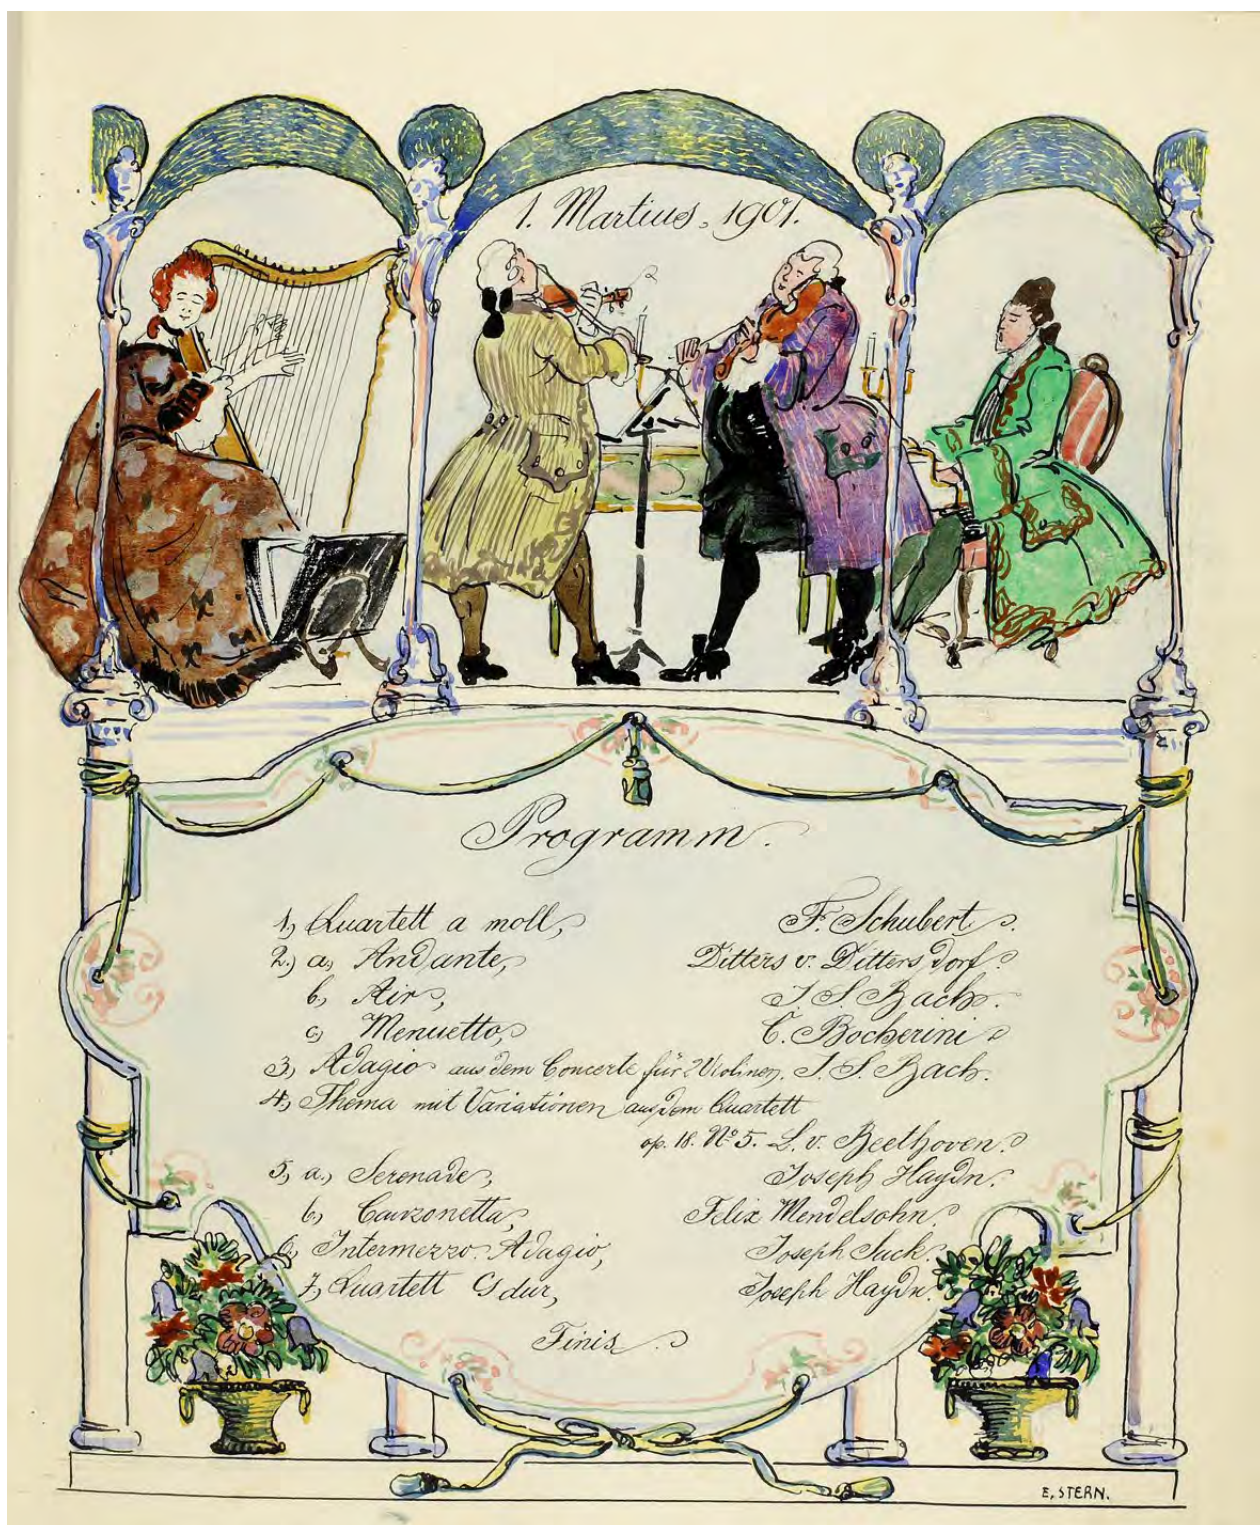 1. Martius, 1901.
Programm.
1, Quartett a moll, F. Schubert.
2.) a, Andante, Ditters v. Dittersdorf.
b, Air, J. S. Bach.
c, Menuetto, C. Bocherini
3, Adagio aus dem Concerte für 2 Violinen. J. S. Bach.
4, Thema mit Variationen aus dem Quartett
op. 18. No 5. L. v. Beethoven.
5, a, Serenade, Joseph Haydn.
b, Canzonetta, Felix Mendelsohn.
6, Intermezzo. Adagio, Joseph Suck.
7, Quartett G dur, Joseph Haydn.
Finis.
E. STERN.